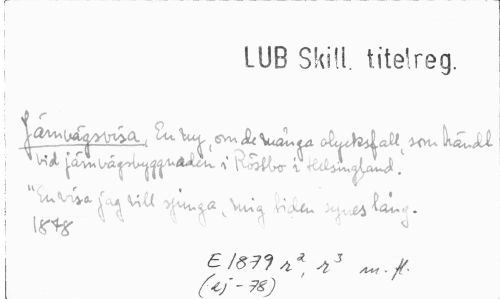 LUB Skill. titelreg.
Järnvägsvisa, En ny, om de många olycksfall, som händt
vid järnvägsbyggnaden i Röstbo i Helsingland.
"En visa jag vill sjunga, mig tiden synes lång.
1878
E 1879 r², r³ m. fl.
(ej - 78)